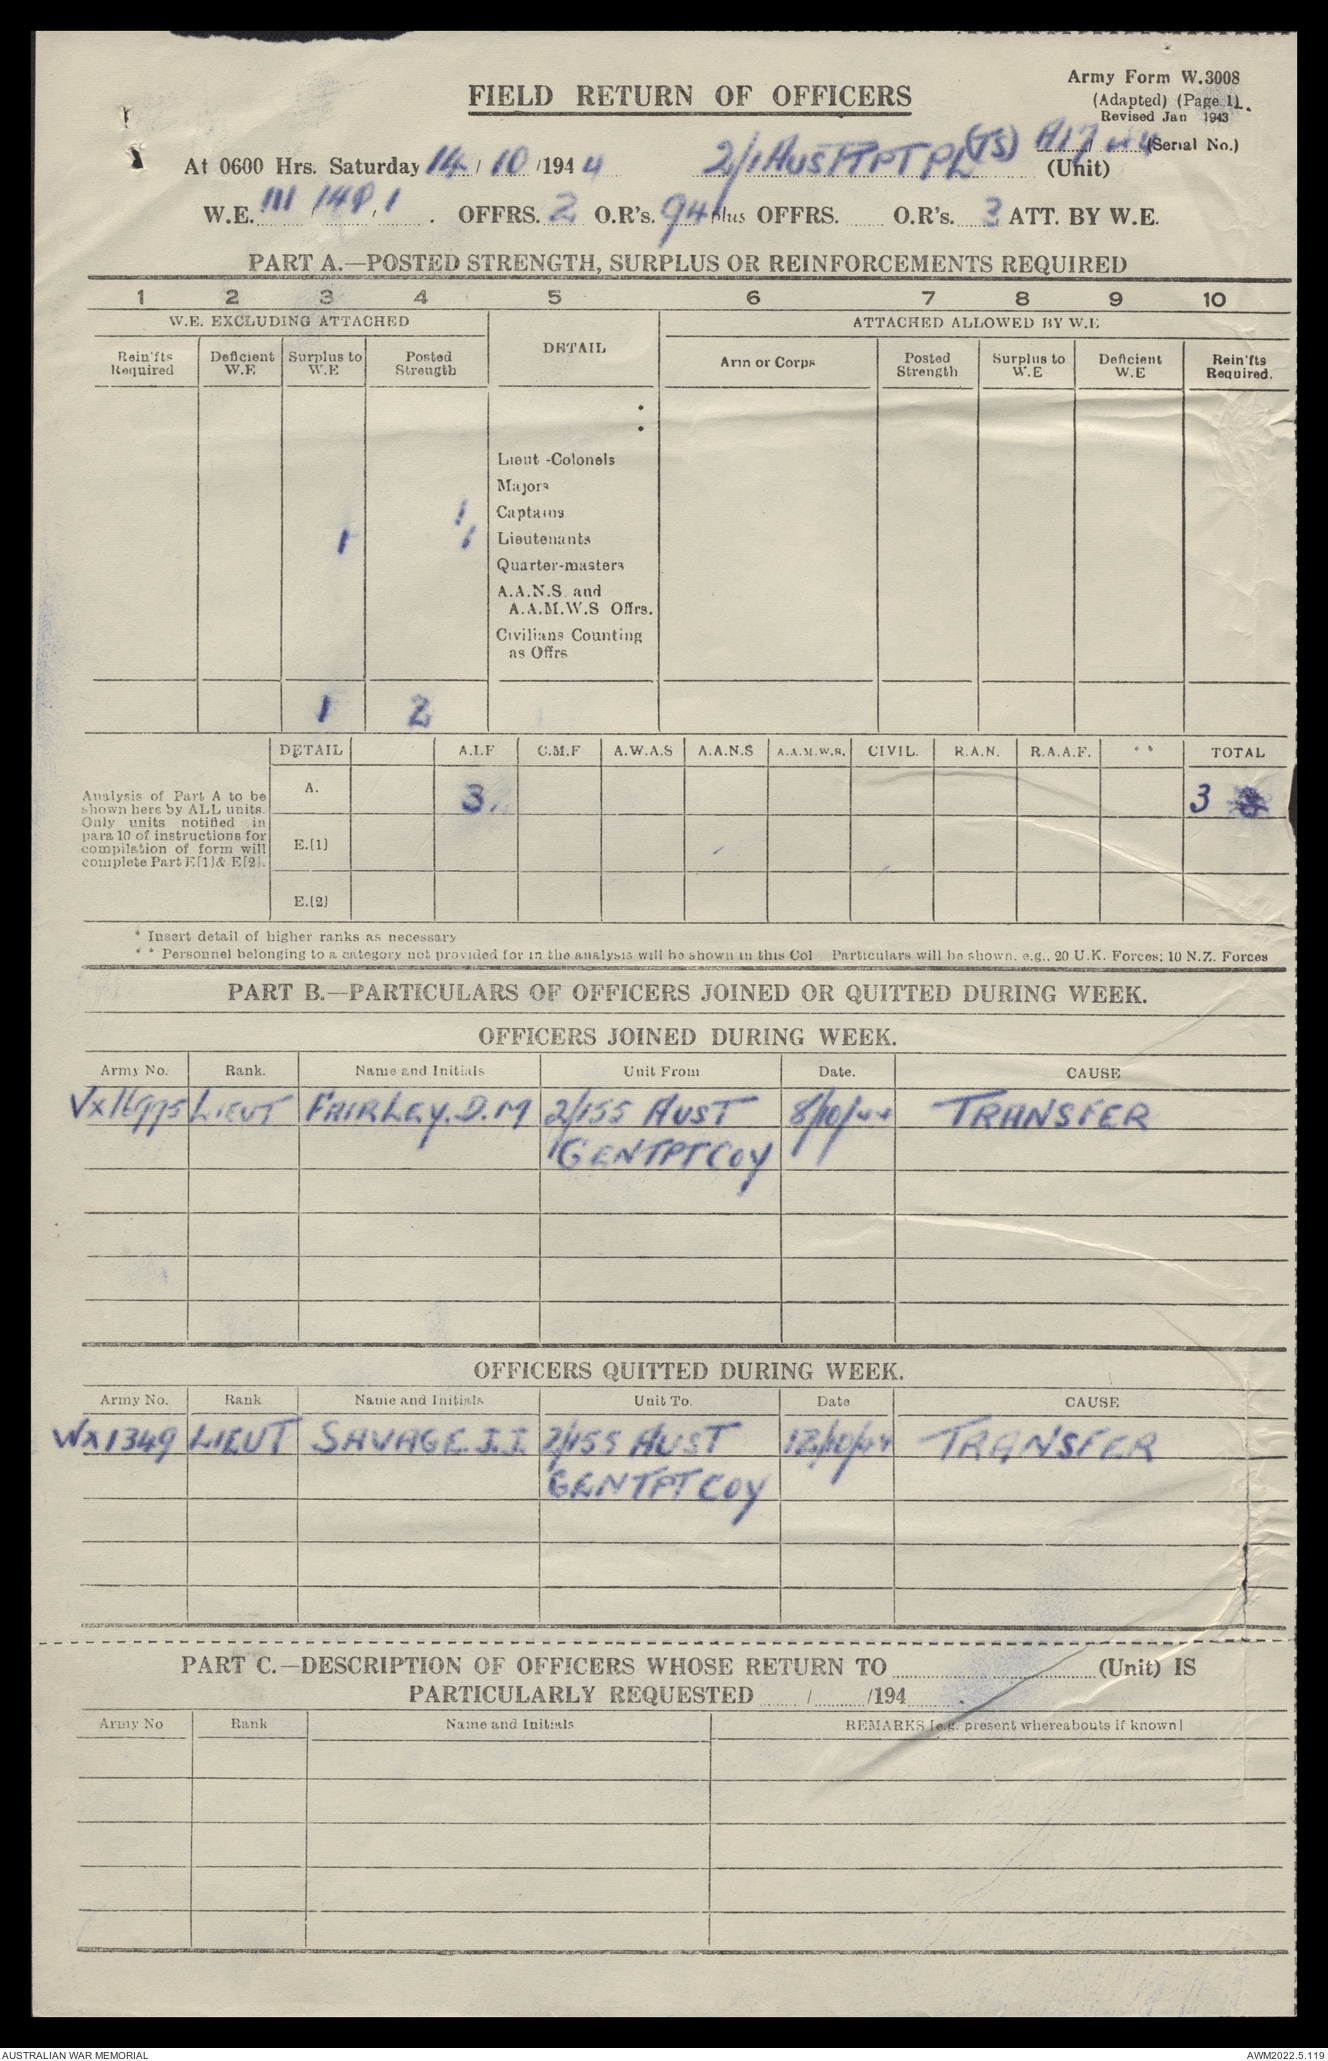 Army Form W.3008
FIELD RETURN OF OFFICERS
(Adapted) (Page 1).
Revised Jan 1943
At 0600 Hrs. Saturday 14 / 10 /194 4 2/1 AUST P TPT PL (TS) (Serial No.)
(Unit)
W.E. III 140 1 . OFFRS. 2 O.R's. 94 plus OFFRS. ...... O.R's. 3 ATT. BY W.E.
PART A.—POSTED STRENGTH, SURPLUS OR REINFORCEMENTS REQUIRED
1 2 3 4 5 6 7 8 9 10
W.E. EXCLUDING ATTACHED DETAIL ATTACHED ALLOWED BY W.E
Rein'fts Required Deficient W.E Surplus to W.E Posted Strength Arm or Corps Posted Strength Surplus to W.E Deficient W.E Rein'fts Required.
Lieut -Colonels
Majors
1 Captains
1 1 Lieutenants
Quarter-masters
A.A.N.S. and
A.A.M.W.S Offrs.
Civilians Counting
as Offrs
1 2
DETAIL A.I.F C.M.F A.W.A.S A.A.N.S A.A.M.W.S. CIVIL. R.A.N. R.A.A.F. * * TOTAL
Analysis of Part A to be
shown here by ALL units.
Only units notified in
para 10 of instructions for
compilation of form will
complete Part E[1]& E[2].
A. 3 3
E.[1]
E.[2]
* Insert detail of higher ranks as necessary
* * Personnel belonging to a category not provided for in the analysis will be shown in this Col Particulars will be shown. e.g., 20 U.K. Forces; 10 N.Z. Forces
PART B.—PARTICULARS OF OFFICERS JOINED OR QUITTED DURING WEEK.
OFFICERS JOINED DURING WEEK.
Army No. Rank. Name and Initials Unit From Date. CAUSE
VX16995 LIEUT FAIRLEY. D. M 2/155 AUST 8/10/44 TRANSFER
GEN TPT COY
OFFICERS QUITTED DURING WEEK.
Army No. Rank Name and Initials Unit To. Date CAUSE
WX1349 LIEUT SAVAGE. J. J. 2/155 AUST 12/10/44 TRANSFER
GEN TPT COY
PART C.—DESCRIPTION OF OFFICERS WHOSE RETURN TO ............ (Unit) IS
PARTICULARLY REQUESTED ...... / ...... /194 ......
Army No Rank Name and Initials REMARKS [e.g. present whereabouts if known]
AUSTRALIAN WAR MEMORIAL AWM2022.5.119